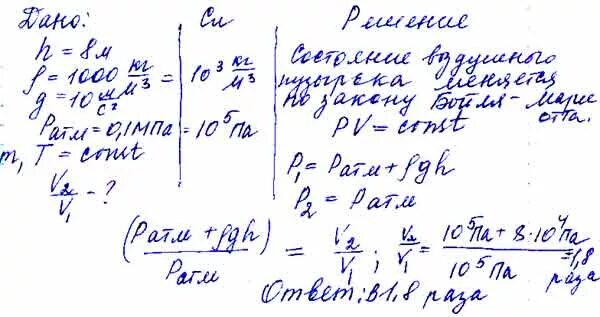 Дано:
h = 8м
ρ = 1000 кг/м³ =
g = 10 м/с²
Pатм = 0,1МПа =
m, T = const
V₂/V₁ - ?
Си
10³ кг/м³
10⁵Па
Решение
Состояние воздушного
пузырька меняется
по закону Бойля - Мари
отта.
PV = const
P₁ = Pатм + ρgh
P₂ = Pатм
(Pатм + ρgh)/Pатм = V₂/V₁ ; V₂/V₁ = (10⁵Па + 8·10⁴Па)/10⁵Па = 1,8
раза
Ответ: в 1,8 раза